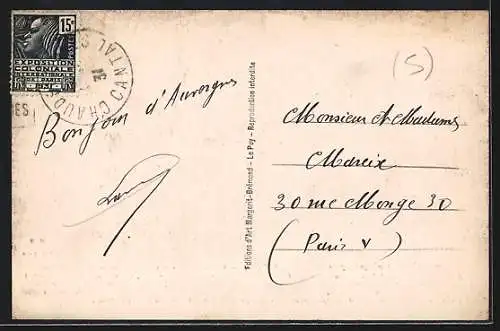 15c
POSTES
EXPOSITION
COLONIALE
INTERNATIONALE
CANTAL
CHAUDES
31
Bonjour d'Auvergne
Editions d'Art Margerit-Brémond - Le Puy - Reproduction interdite
(S)
Monsieur et Madame
Mareix
30 rue Monge 30
(Paris V)